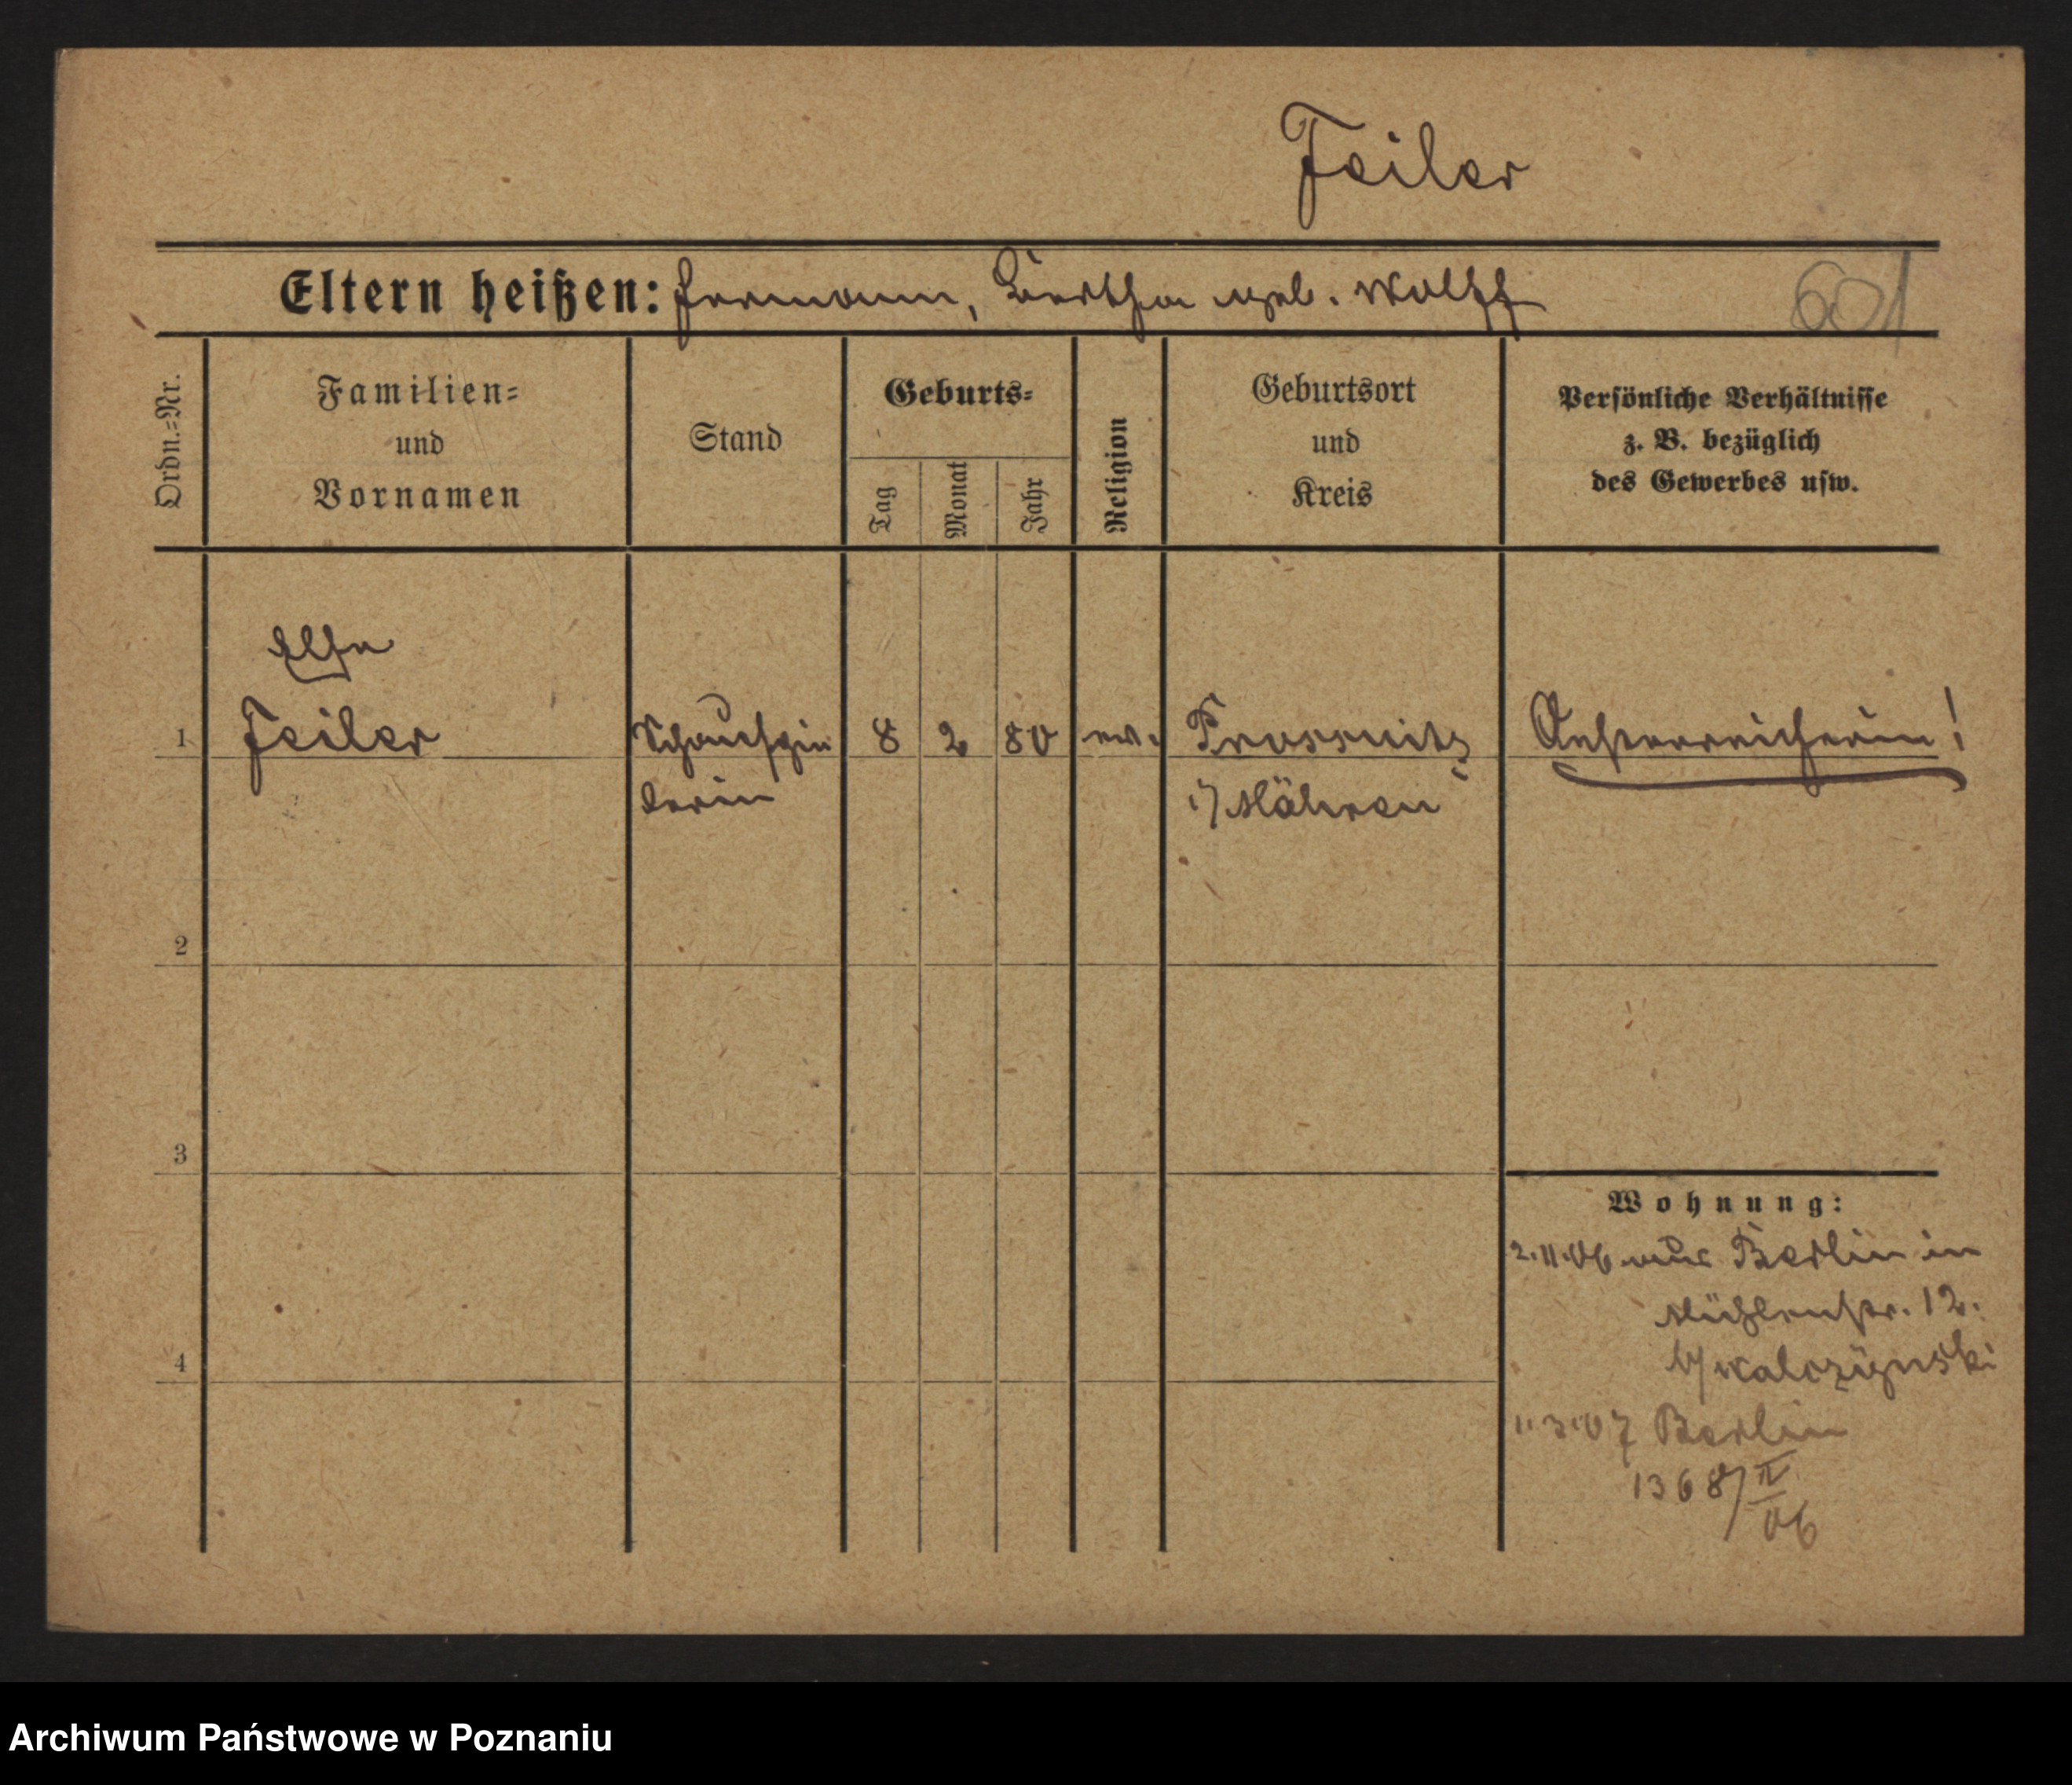 Feiler
Eltern heißen: Hermann, Bertha geb. Wolff
601
Ordn.=Nr.
Familien=
und
Vornamen
Stand
Geburts=
Tag
Monat
Jahr
Religion
Geburtsort
und
Kreis
Persönliche Verhältnisse
z. B. bezüglich
des Gewerbes usw.
Elsa
1 Feiler Schauspie 8 2 80 ev. Prossnitz Oesterreicherin!
lerin i/ Mähren
2
3
4
Wohnung:
2.11.06 aus Berlin in
Mühlenstr. 12.
b/ Walczynski
11.3.07 Berlin
1368/II
06
Archiwum Państwowe w Poznaniu